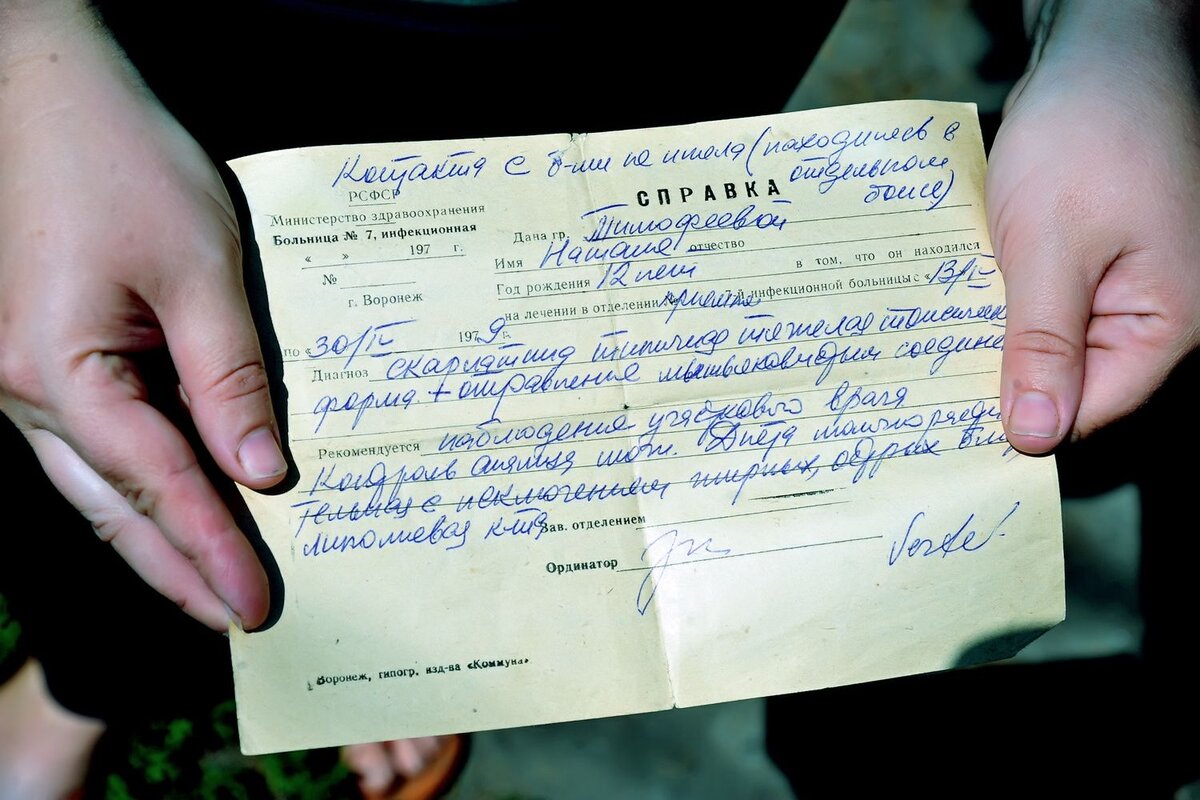 Контакта с б-ми не имела (находилась в
отдельном
боксе)
РСФСР
Министерство здравоохранения
Больница № 7, инфекционная
« » 197 г.
№
г. Воронеж
СПРАВКА
Дана гр. Тимофеевой
Имя Наташа отчество
Год рождения 12 лет в том, что он находился
на лечении в отделении инфекционной больницы с «13/IV
по «30/IV 1979г.
Диагноз скарлатина типичная тяжелая токсическ
форма + отравление мышьяковидным соедине
Рекомендуется наблюдение участкового врача
Диета молокорасти
тельная с исключением жирных, острых блюд
Зав. отделением
Ординатор
Воронеж, гипогр. изд-ва «Коммуна»